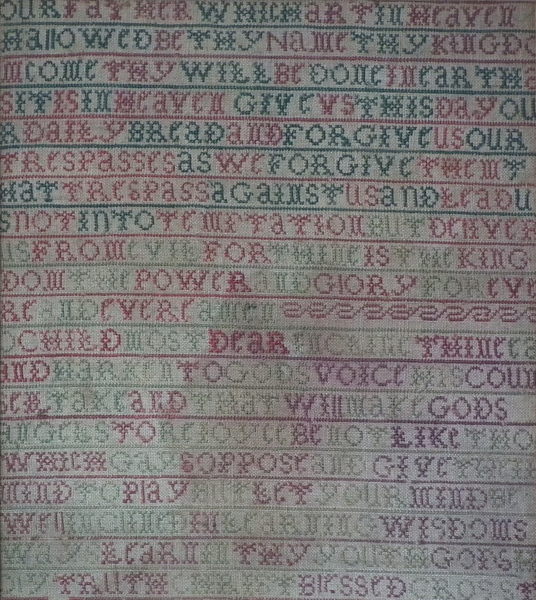 OUR FATHER WHICH ART IN HEAVEN
HALLOWED BE THY NAME THY KINGDO
M COME THY WILL BE DONE IN EARTH A
S IT IS IN HEAVEN GIVE VS THIS DAY OU
R DAILY BREAD AND FORGIVE US OUR
TRESPASSES AS WE FORGIVE THEM T
HAT TRESPASS AGAINST US AND LEAD U
S NOT INTO TEMPTATION BUT DELIVER
US FROM EVIL FOR THINE IS THE KING
DOM THE POWER AND GLORY FOR EVE
RE AND EVERE AMEN
CHILD MOST DEAR ENCLINE THINE EA
AND HARKEN TO GODS VOICE HIS COUN
SEL TAKE AND THAT WILL MAKE GODS
ANGELS TO REIOICE BE NOT LIKE THO
WHICH GAY SOPPOSE AND GIVE THEIR
MIND TO PLAY BUT LET YOUR MIND BE
WELL INCLINED IN LEARNING WISDOMS
WAY LEARN IN THY YOUTH GODS
TRUTH BLESSED